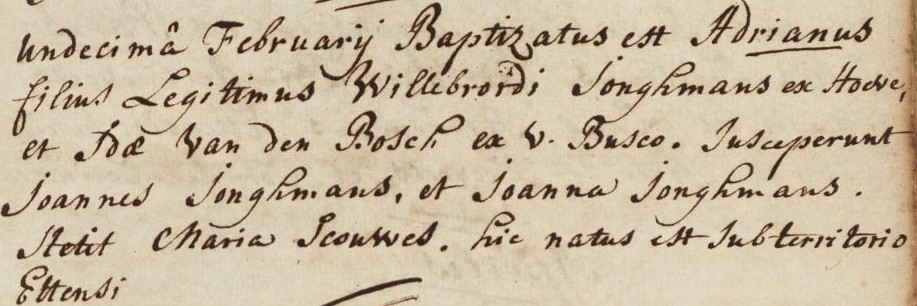 Undecimâ Februarij Baptizatus est Adrianus
filius Legitimus Willebrordi Jonghmans ex Hoeve,
et Idæ Van den Bosch ex v. Busco. Susceperunt
Joannes Jonghmans, et Joanna Jonghmans.
Stetit Maria Scouwes. hic natus est sub territorio
Ettensi